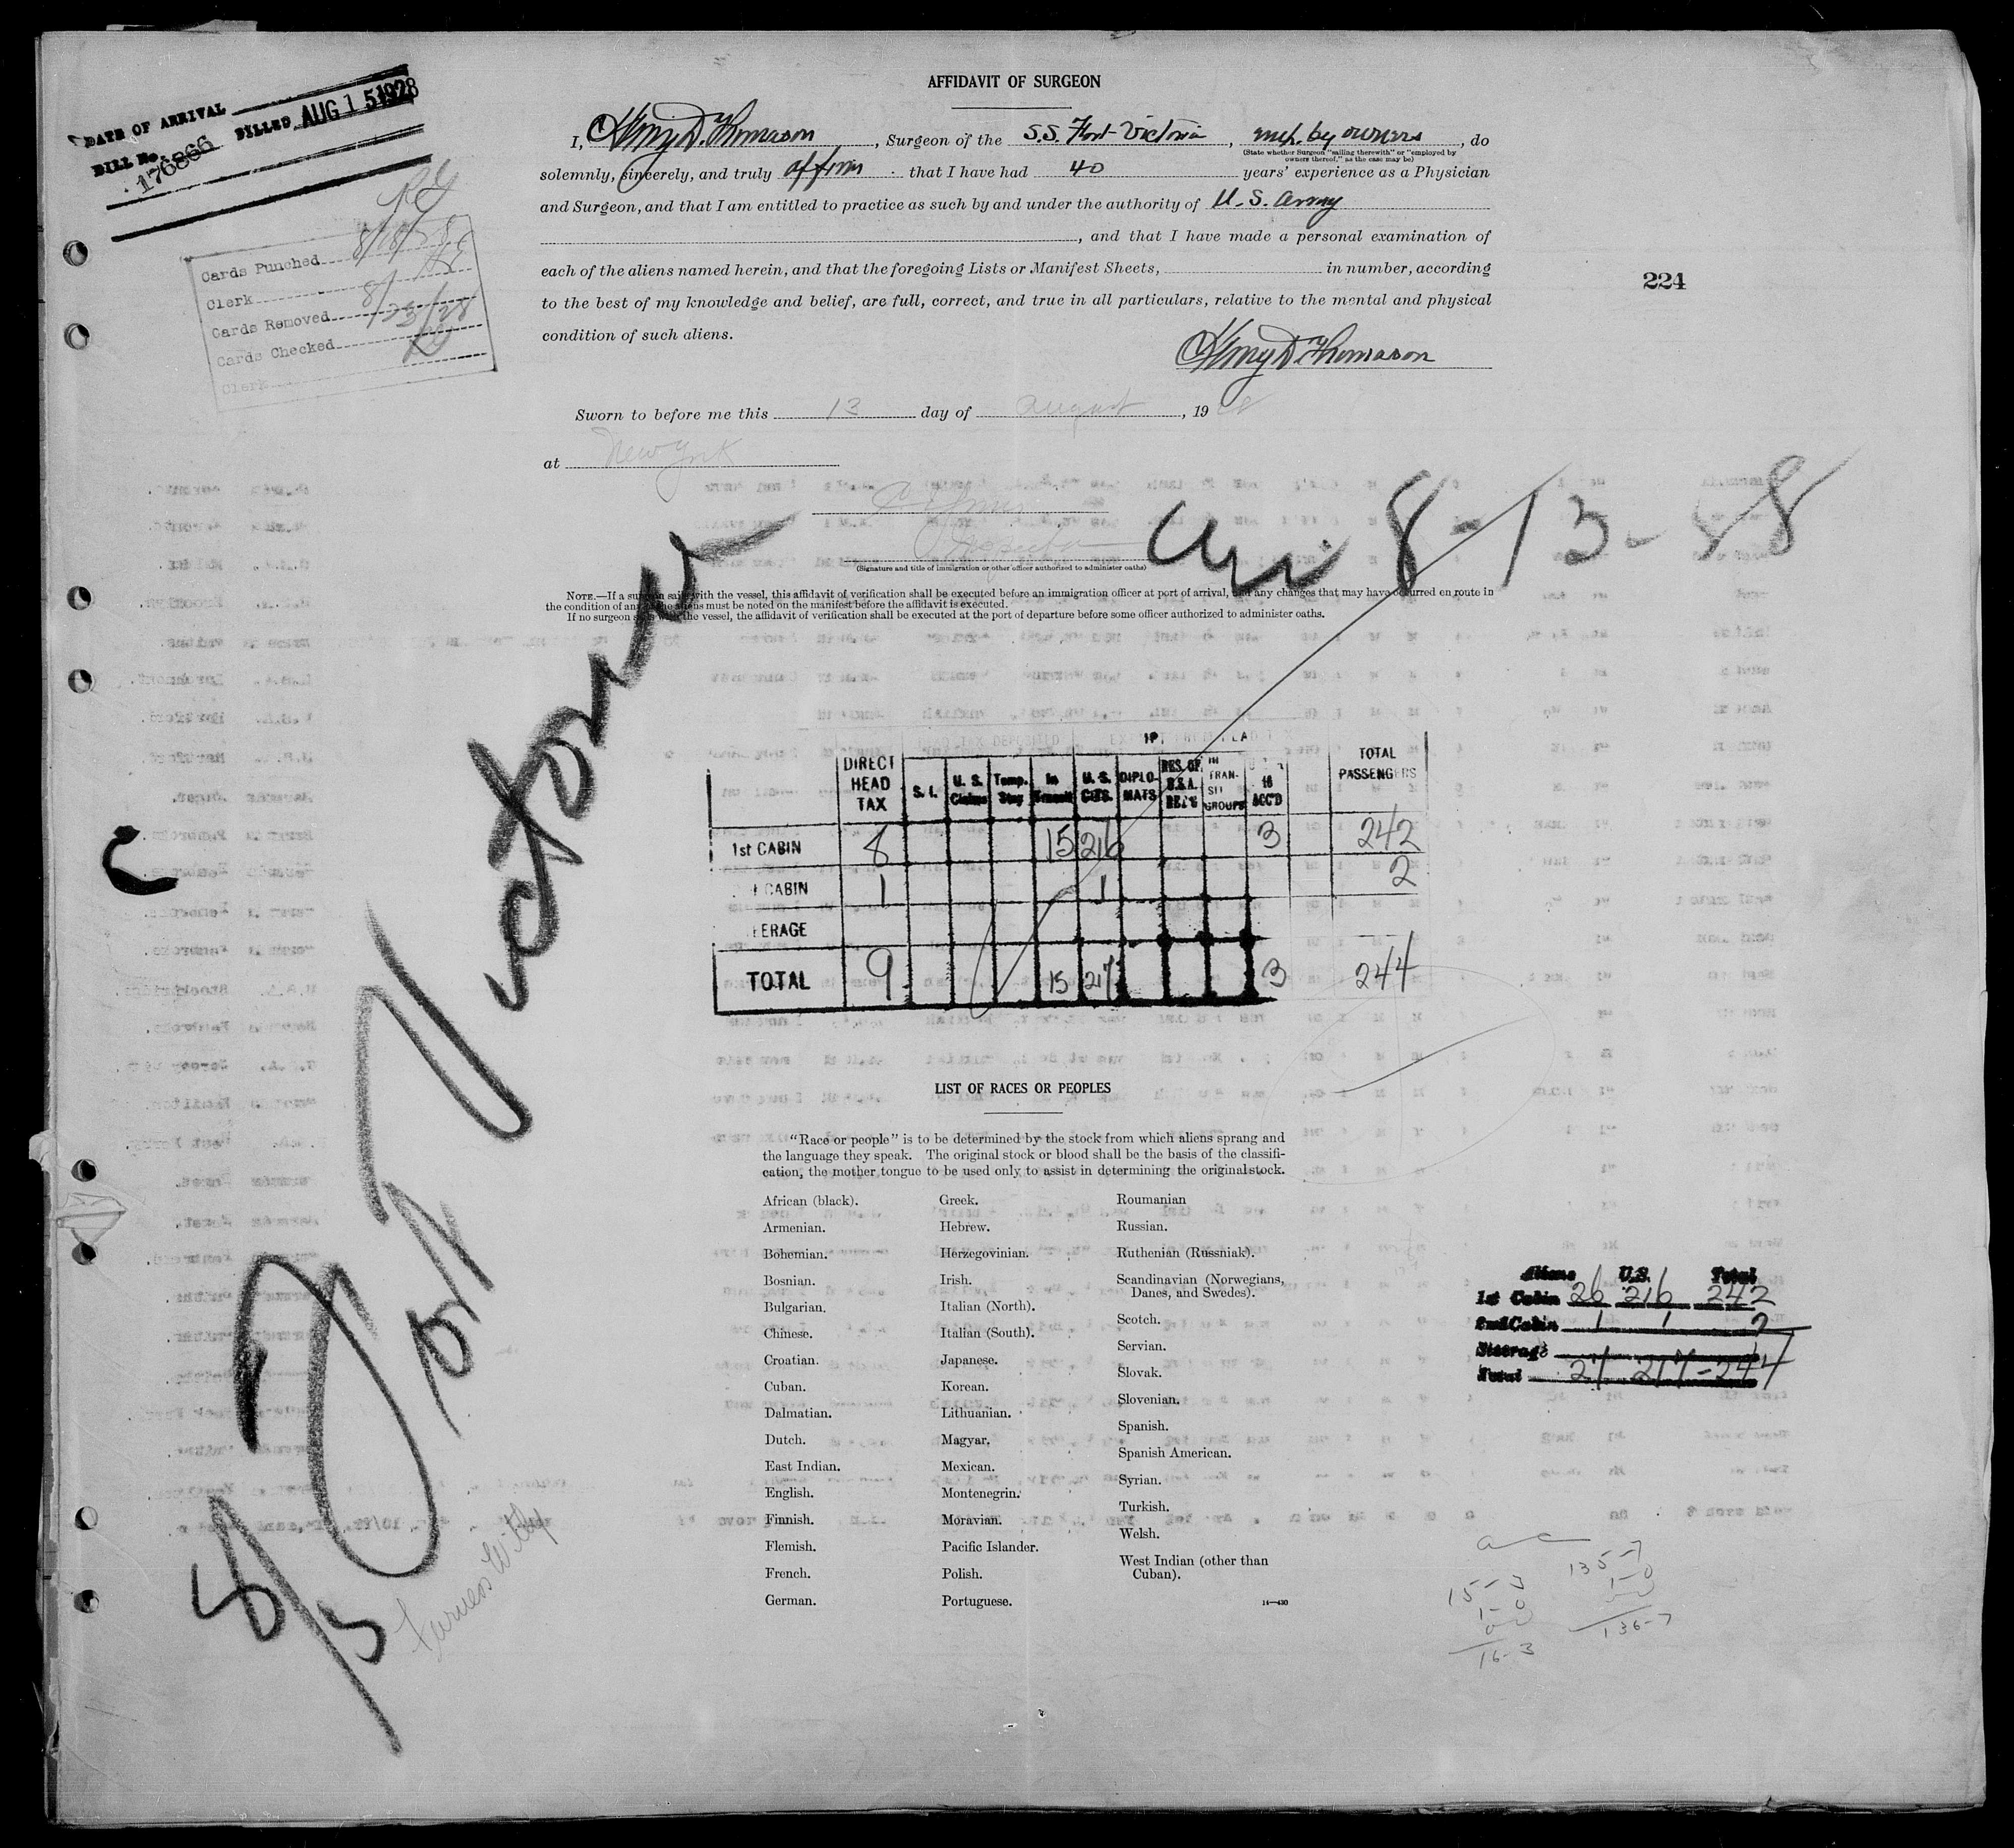 DATE OF ARRIVAL
BILL No. 176866 BILLED AUG 15 1928
Cards Punched 8/18/28
Clerk
Cards Removed 8/23/28
Cards Checked
Clerk
AFFIDAVIT OF SURGEON
I, Henry D. Thomason, Surgeon of the S.S. Fort Victoria, emp. by owners, do
(State whether Surgeon "sailing therewith" or "employed by
owners thereof," as the case may be)
solemnly, sincerely, and truly affirm that I have had 40 years' experience as a Physician
and Surgeon, and that I am entitled to practice as such by and under the authority of U.S. Army
, and that I have made a personal examination of
each of the aliens named herein, and that the foregoing Lists or Manifest Sheets, in number, according
to the best of my knowledge and belief, are full, correct, and true in all particulars, relative to the mental and physical
condition of such aliens.
224
Henry D. Thomason
Sworn to before me this 13 day of August, 1928
at New York
Inspector
(Signature and title of immigration or other officer authorized to administer oaths)
8-13-28
NOTE.—If a surgeon sails with the vessel, this affidavit of verification shall be executed before an immigration officer at port of arrival, and any changes that may have occurred en route in
the condition of any of the aliens must be noted on the manifest before the affidavit is executed.
If no surgeon sails with the vessel, the affidavit of verification shall be executed at the port of departure before some officer authorized to administer oaths.
HEAD TAX DEPOSITED
DIRECT HEAD TAX S. I. U. S. Claims Temp. Stay In Transit U. S. CITS. DIPLOMATS RES. OF U.S.A. RET'G IN TRANSIT GROUPS 16 ACC'D TOTAL PASSENGERS
1st CABIN 8 15 216 3 242
CABIN 1 1 2
ERAGE
TOTAL 9 15 217 3 244
Fort Victoria
8/13
Furness Withy
LIST OF RACES OR PEOPLES
"Race or people" is to be determined by the stock from which aliens sprang and
the language they speak. The original stock or blood shall be the basis of the classifi-
cation, the mother tongue to be used only to assist in determining the original stock.
African (black).
Armenian.
Bohemian.
Bosnian.
Bulgarian.
Chinese.
Croatian.
Cuban.
Dalmatian.
Dutch.
East Indian.
English.
Finnish.
Flemish.
French.
German.
Greek.
Hebrew.
Herzegovinian.
Irish.
Italian (North).
Italian (South).
Japanese.
Korean.
Lithuanian.
Magyar.
Mexican.
Montenegrin.
Moravian.
Pacific Islander.
Polish.
Portuguese.
Roumanian
Russian.
Ruthenian (Russniak).
Scandinavian (Norwegians,
Danes, and Swedes).
Scotch.
Servian.
Slovak.
Slovenian.
Spanish.
Spanish American.
Syrian.
Turkish.
Welsh.
West Indian (other than
Cuban).
14—430
Aliens U.S. Total
1st Cabin 26 216 242
2nd Cabin 1 1 2
Steerage
Total 27 217 - 244
a c
15-3 135-7
1-0 1-0
16-3 136-7